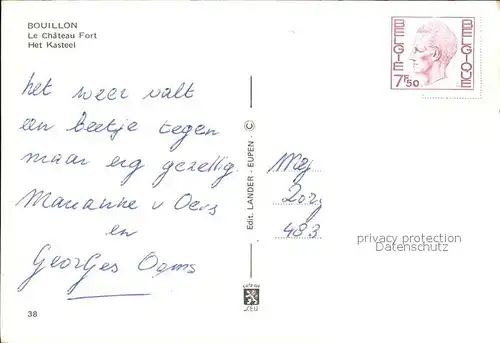 BOUILLON
Le Château Fort
Het Kasteel
BELGIE
BELGIQUE
7F50
het weer valt
een beetje tegen
maar erg gezellig.
Marianne v Oers
en
Georges
Edit. LANDER - EUPEN - ©
Mej
483
privacy protection
Datenschutz
38